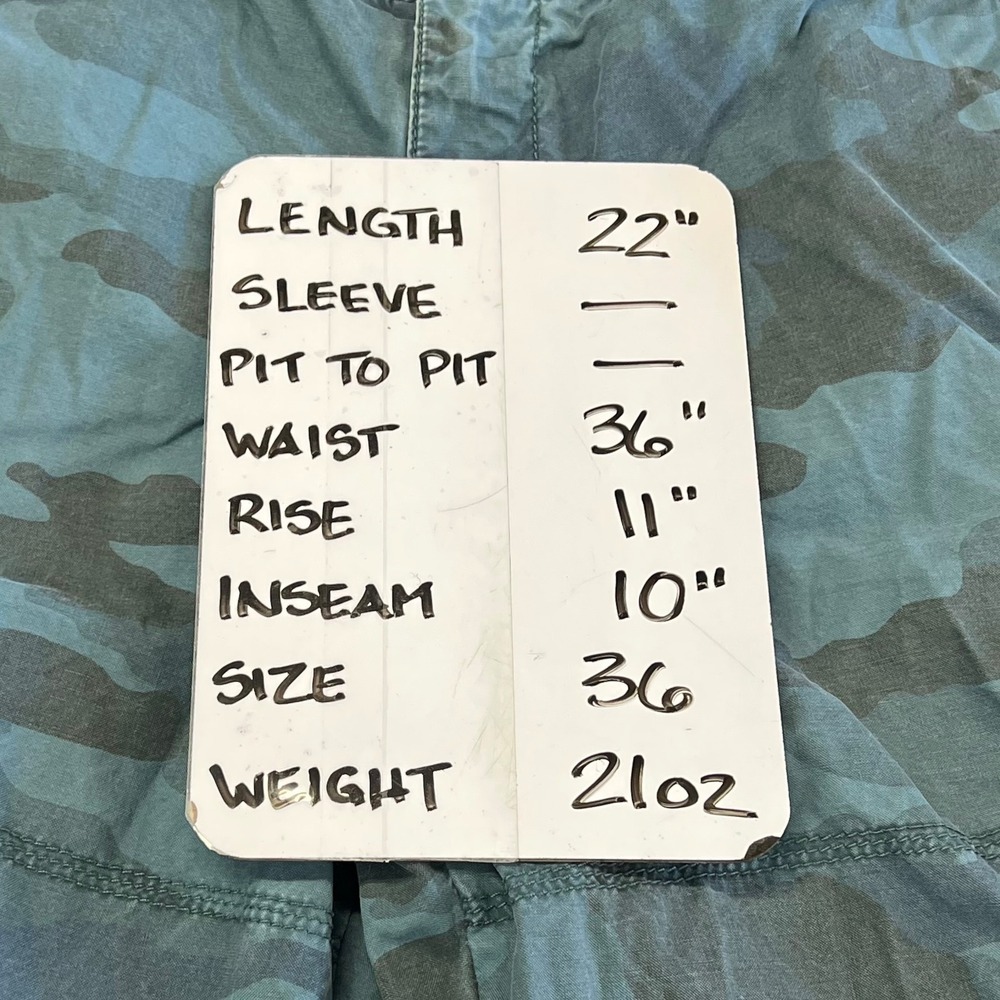 LENGTH 22"
SLEEVE —
PIT TO PIT —
WAIST 36"
RISE 11"
INSEAM 10"
SIZE 36
WEIGHT 21oz